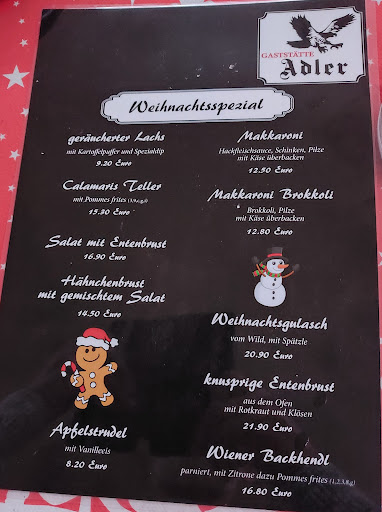 GASTSTÄTTE
Adler
Weihnachtsspezial
geräucherter Lachs
mit Kartoffelpuffer und Spezialdip
9.20 Euro
Calamaris Teller
mit Pommes frites
15.30 Euro
Salat mit Entenbrust
16.90 Euro
Hähnchenbrust
mit gemischtem Salat
14.50 Euro
Apfelstrudel
mit Vanilleeis
8.20 Euro
Makkaroni
Hackfleischsauce, Schinken, Pilze
mit Käse überbacken
12.50 Euro
Makkaroni Brokkoli
Brokkoli, Pilze
mit Käse überbacken
12.80 Euro
Weihnachtsgulasch
vom Wild, mit Spätzle
20.90 Euro
knusprige Entenbrust
aus dem Ofen
mit Rotkraut und Klösen
21.90 Euro
Wiener Backhendl
parniert, mit Zitrone dazu Pommes frites (1,2,3,8,g)
16.80 Euro